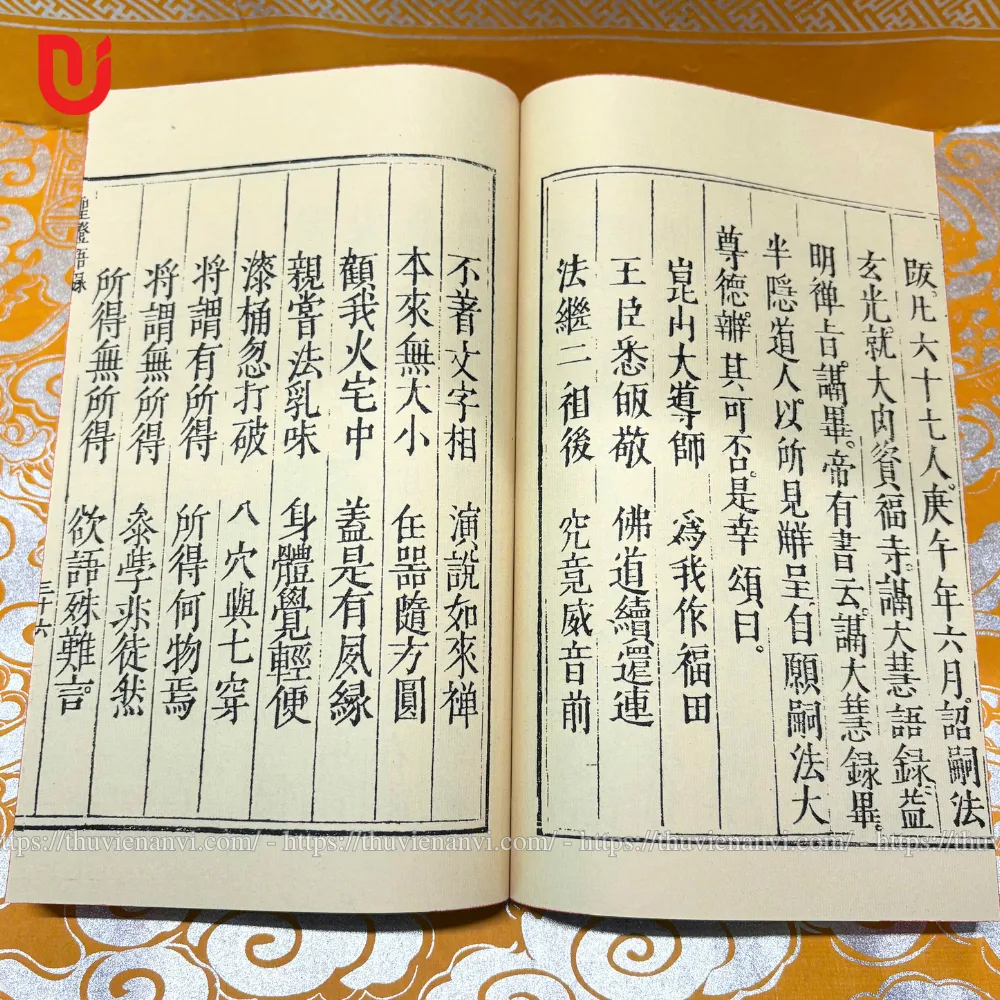 皈凡六十七人庚午年六月。詔嗣法
玄光就大内資福寺。講大慧語録。益
明禅旨。講畢。帝有書云。講大慧録畢。
半隱道人。以所見辨呈自願嗣法大
尊德。辨其可否。是幸頌曰。
崑山大導師 為我作福田
王臣悉皈敬 佛道續還連
法繼二祖後 究竟威音前
不著文字相 演說如來禅
本來無大小 任噐隨方圓
顧我火宅中 蓋是有夙緣
親嘗法乳味 身體覺輕便
漆桶忽打破 八穴與七穿
將謂有所得 所得何物焉
將謂無所得 叅學非徒然
所得無所得 欲語殊難言。
證語録
三十六
https://thuvienanvi.com/ - https://thuvienanvi.com/ - https://thuvienanvi.com/ - https://thuvienanvi.com/